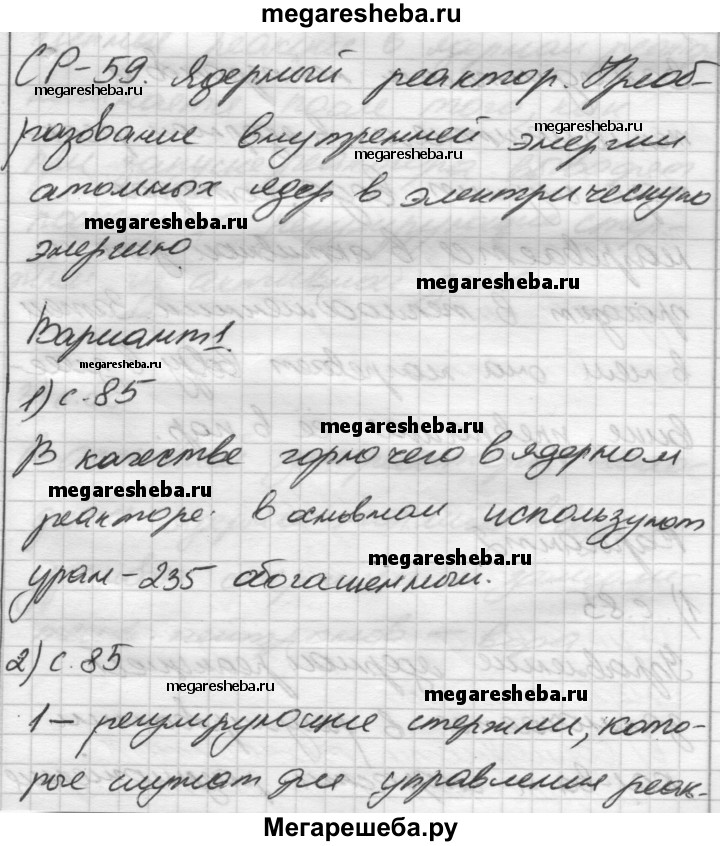 megaresheba.ru
СР-59. Ядерный реактор. Преоб-
megaresheba.ru
megaresheba.ru
разование внутренней энергии
megaresheba.ru
атомных ядер в электрическую
megaresheba.ru
энергию
megaresheba.ru
Вариант 1
megaresheba.ru
1) с.85
megaresheba.ru
В качестве горючего в ядерном
megaresheba.ru
реакторе в основном используют
megaresheba.ru
уран-235 обогащенный.
2) с.85
megaresheba.ru
megaresheba.ru
1 - регулирующие стержни, кото-
рые служат для управления реак-
megaresheba.ru
megaresheba.ru
Мегарешеба.ру